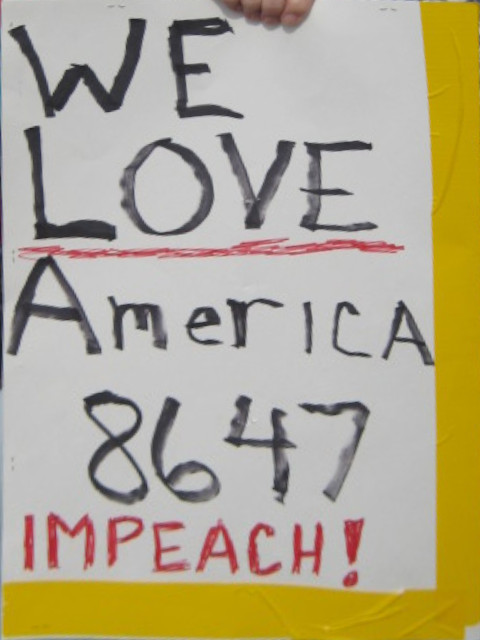 WE
LOVE
AmericA
8647
IMPEACH!